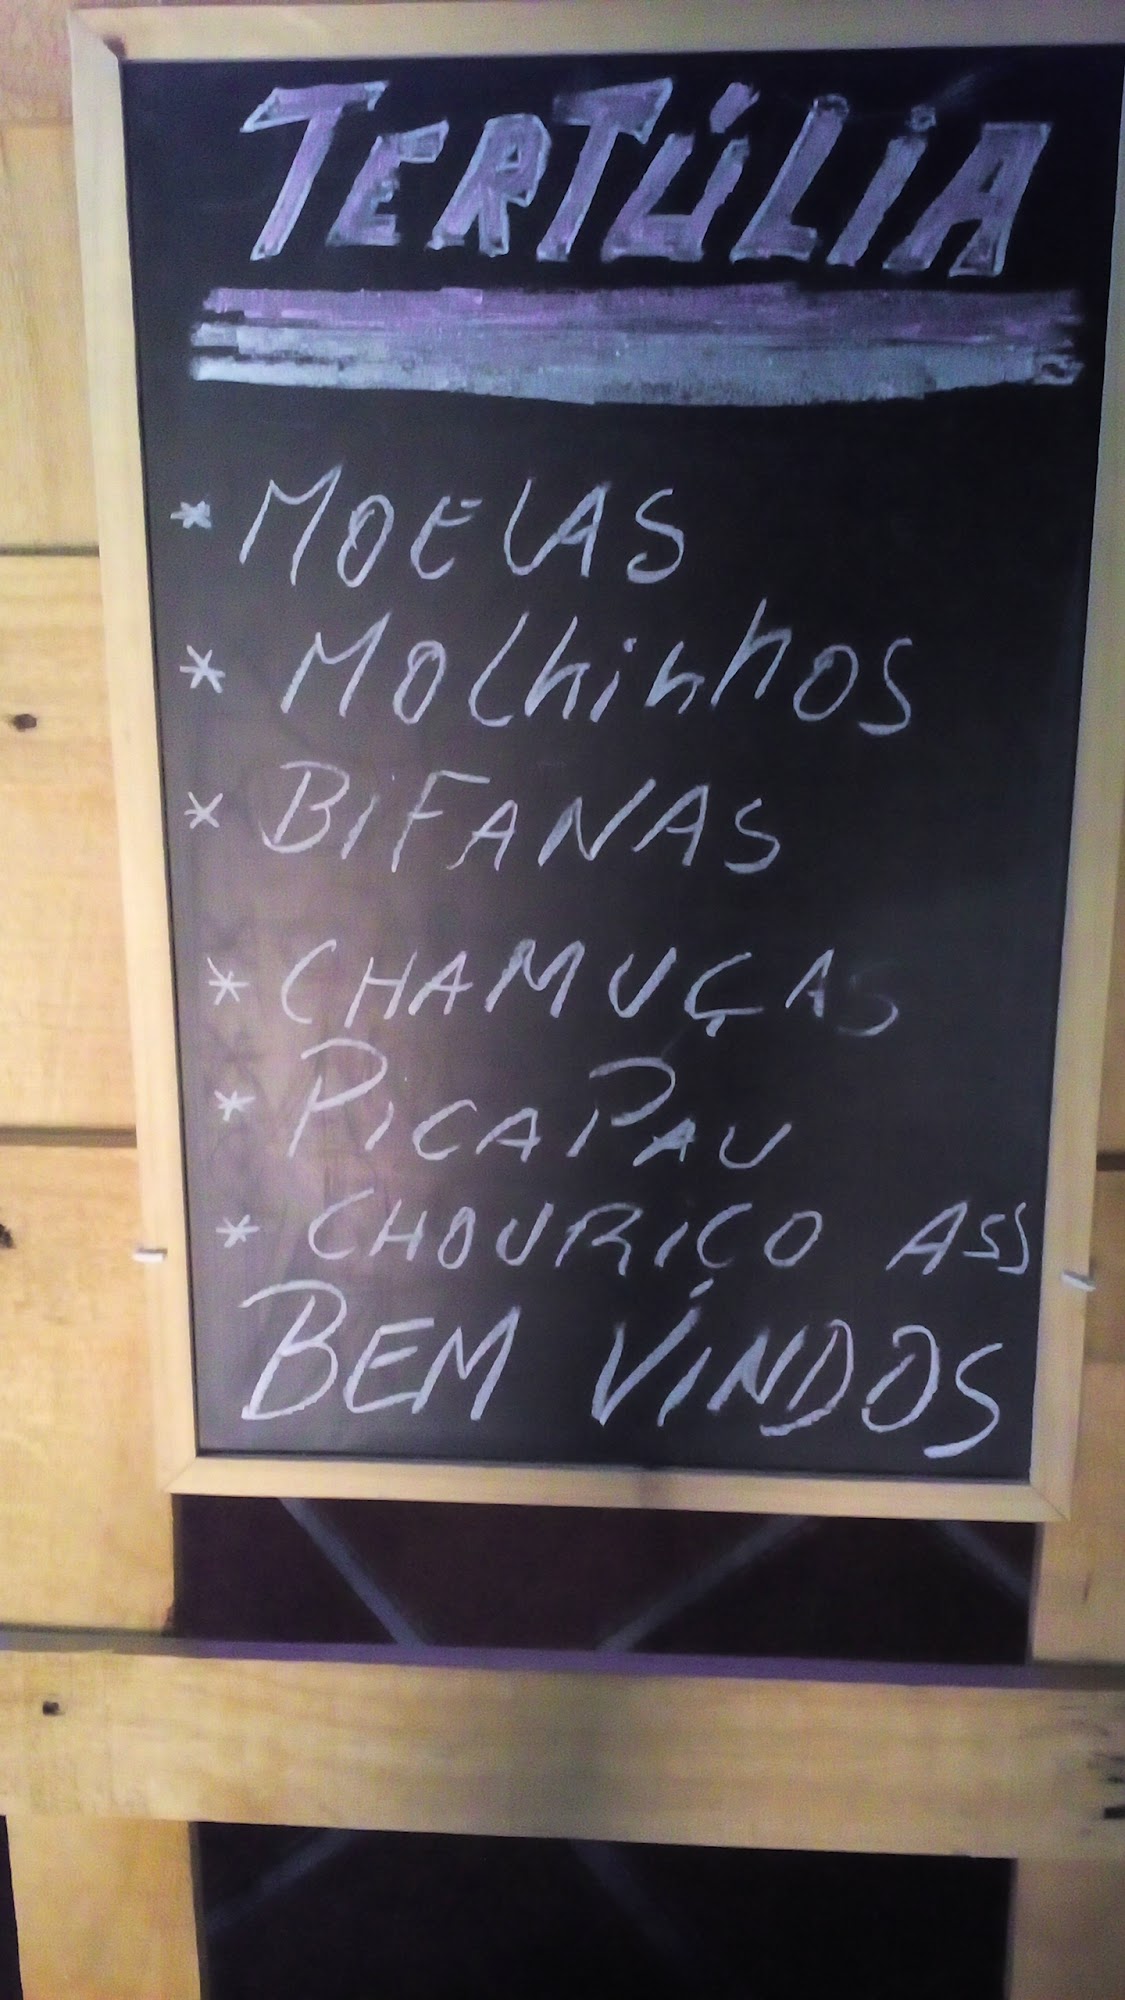 TERTÚLIA
* MOELAS
* Molhinhos
* BiFANAS
* CHAMUÇAS
* PICAPAU
* CHOURIÇO ASS
BEM VINDOS